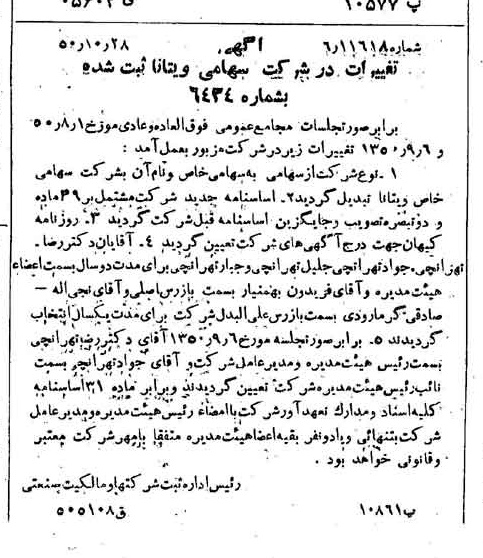 پ ۱۰۵۷۷
شماره ۶٫۱۱۶۱۸ آگهی ۵۰٫۱۰٫۲۸
تغییرات در شرکت سهامی ویتانا ثبت شده
بشماره ۶۴۳۴
برابر صورتجلسات مجامع عمومی فوق‌العاده و عادی مورخ ۵۰٫۸٫۱
و ۱۳۵۰٫۹٫۶ تغییرات زیر در شرکت مزبور بعمل آمد :
۱ ـ نوع شرکت از سهامی به سهامی خاص و نام آن بشرکت سهامی
خاص ویتانا تبدیل گردید ۲ـ اساسنامه جدید شرکت مشتمل بر ۴۹ ماده
و دو تبصره تصویب و جایگزین اساسنامه قبل شرکت گردید ۳ـ روزنامه
کیهان جهت درج آگهی‌های شرکت تعیین گردید ۴ـ آقایان دکتر رضا ـ
تهرانچی ـ جواد تهرانچی جلیل تهرانچی و جبار تهرانچی برای مدت دو سال بسمت اعضاء
هیئت مدیره و آقای فریدون بهمنیار بسمت بازرس اصلی و آقای نجی‌اله ـ
صادقی گرمارودی بسمت بازرس علی‌البدل شرکت برای مدت یکسال انتخاب
گردیدند ۵ـ برابر صورتجلسه مورخ ۱۳۵۰٫۹٫۶ آقای دکتر رضا تهرانچی
بسمت رئیس هیئت مدیره و مدیر عامل شرکت و آقای جواد تهرانچی بسمت
نائب رئیس هیئت مدیره شرکت تعیین گردیدند و برابر ماده ۳۱ اساسنامه
کلیه اسناد و مدارک تعهدآور شرکت با امضاء رئیس هیئت مدیره و مدیر عامل
شرکت بتنهائی و یا دو نفر بقیه اعضا هیئت مدیره متفقا با مهر شرکت معتبر
و قانونی خواهد بود .
رئیس اداره ثبت شرکتها و مالکیت صنعتی
پ ۱۰۸۶۱ ق ۵۰۵۱۰۸